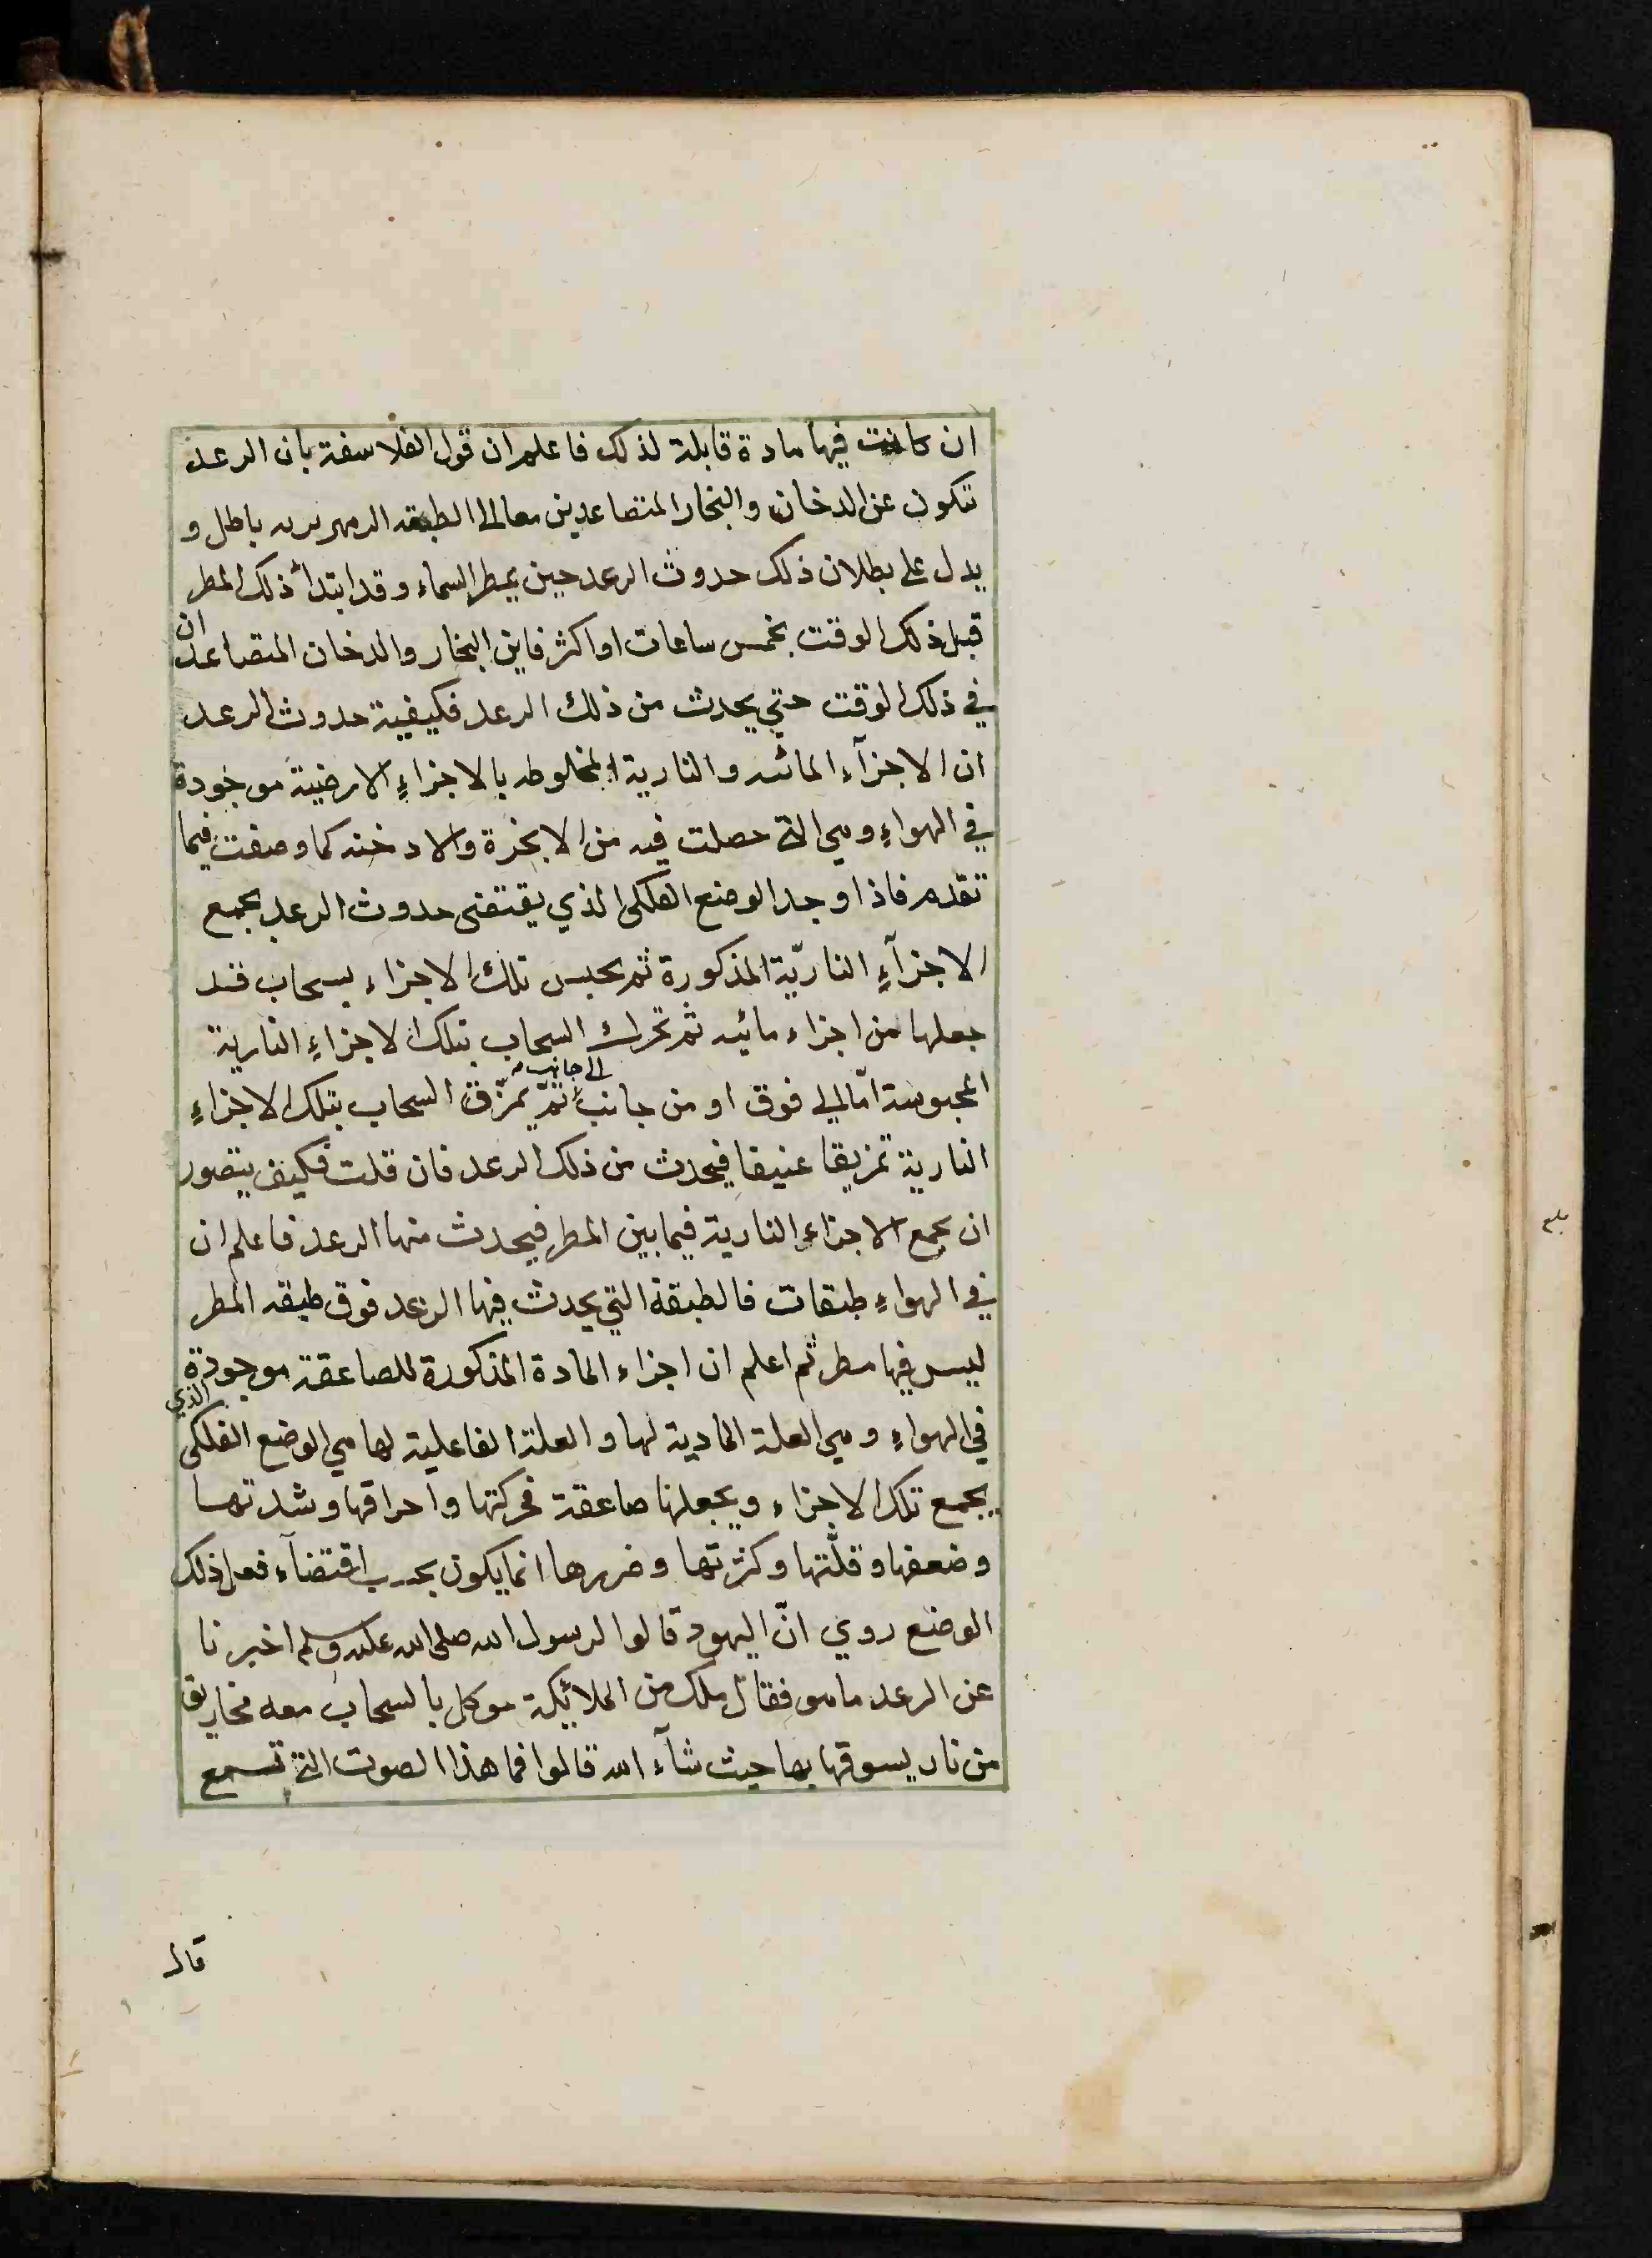 ان كانت فيها مادة قابلة لذلك فاعلم ان قول الفلاسفة بان الرعد
تكون عن الدخان والبخار المتصاعدين معا الى الطبقه الزمهريريه باطل و
يدل على بطلان ذلك حدوث الرعد حين يمطر السماء وقد ابتدأ ذلك المطر
قبل ذلك الوقت بخمس ساعات او اكثر فاين البخار والدخان المتصاعدان
في ذلك الوقت حتي يحدث من ذلك الرعد فكيفية حدوث الرعد
ان الاجزآء المائيه والنارية المخلوطه بالاجزاءِ الارضية موجودة
في الهواءِ وهي التي حصلت فيه من الابخرة والادخنه كما وصفت فيما
تقدم فاذا وجد الوضع الفلكى الذي يقتضى حدوث الرعد يجمع
الاجزآءِ الناريّة المذكورة ثم يحبس تلك الاجزاء بسحاب قد
جعلها من اجزاء مائيه ثم تحرك السحاب بتلك الاجزاءِ النارية
المحبوسة امّا الي فوق او من جانب الي جانب ثمّ يمزّق السحاب بتلك الاجزاءِ
النارية تمزيقا عنيفا فيحدث من ذلك الرعد فان قلت فكيف يتصور
ان يجمع الاجزاءِ النارية فيما بين المطر فيحدث منها الرعد فاعلم ان
في الهواءِ طبقات فالطبقة التي يحدث فيها الرعد فوق طبقه المطر
ليس فيها مطر ثم اعلم ان اجزاء المادة المذكورة للصاعقة موجودة
في الهواءِ وهي العلة المادية لها والعلة الفاعلية لها هي الوضع الفلكى الذي
يجمع تلك الاجزاء ويجعلها صاعقة فحركتها واحراقها وشدتها
وضعفها وقلّتها وكثرتها وضررها انما يكون بحسب اقتضآء فعل ذلك
الوضع روي انّ اليهود قالوا لرسول الله صلى الله عليه وسلم اخبرنا
عن الرعد ما هو فقال ملك من الملائكة موكل بالسحاب معه مخاريق
من نار يسوقها بها حيث شآء الله قالوا فما هذا الصوت التي تسمع
قال